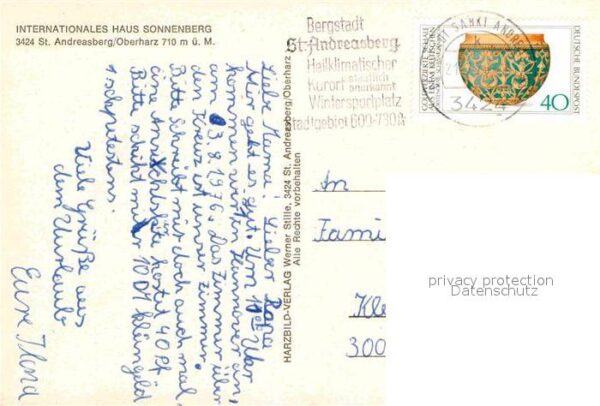 INTERNATIONALES HAUS SONNENBERG
3424 St. Andreasberg/Oberharz 710 m ü. M.
Bergstadt
St. Andreasberg
Heilklimatischer
Kurort staatlich anerkannt
Wintersportplatz
Stadtgebiet 600-730 m
SANKT ANDREAS
3424
DEUTSCHE BUNDESPOST
40
Liebe Mama! Lieber Papa
Mir geht es gut. Um 11 Uhr
kommen wir in Hannover an
am 3.8.1976. Das Zimmer über
dem Kreuz ist unser Zimmer.
Bitte schreibt mir doch auch mal,
eine Ansichtskarte kostet 40 Pf
Bitte schickt mir 10 DM kleingeld
schnellstens.
Viele Grüße aus
dem Urlaub
Eure Ilona
HARZBILD-VERLAG Werner Stille, 3424 St. Andreasberg/Oberharz
Alle Rechte vorbehalten
An
Fami
Kle
300
privacy protection
Datenschutz